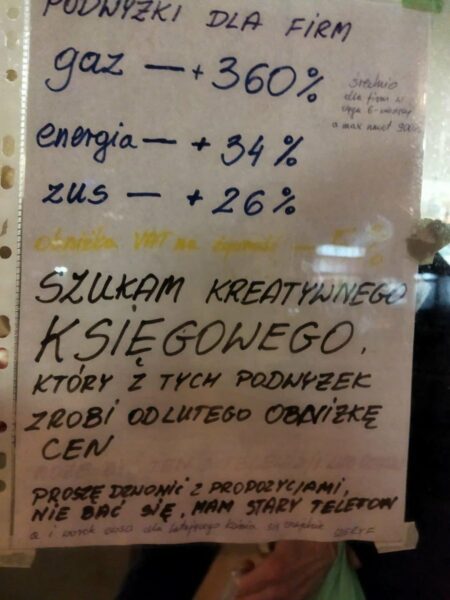 PODWYŻKI DLA FIRM
gaz — + 360%
średnio
dla firm w
a max nawet 900%
energia — + 34%
zus — + 26%
obniżka VAT na żywność —
SZUKAM KREATYWNEGO
KSIĘGOWEGO,
KTÓRY Z TYCH PODWYŻEK
ZROBI OD LUTEGO OBNIŻKĘ
CEN
PROSZĘ DZWONIĆ Z PROPOZYCJAMI,
NIE BAĆ SIĘ, MAM STARY TELEFON
a i worek owsa dla latającego konia się znajdzie